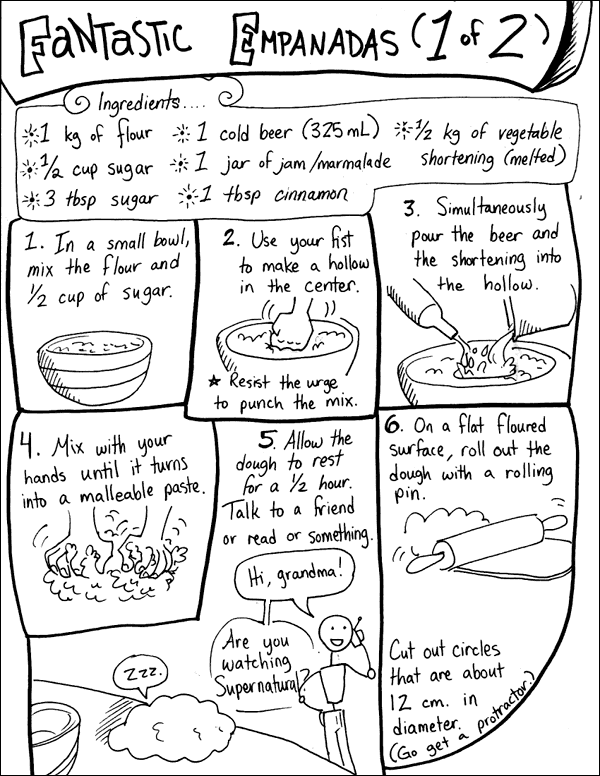 FaNtastic Empanadas (1 of 2)
Ingredients....
1 kg of flour
1/2 cup sugar
3 tbsp sugar
1 cold beer (325 mL)
1 jar of jam/marmalade
1 tbsp cinnamon
1/2 kg of vegetable
shortening (melted)
1. In a small bowl,
mix the flour and
1/2 cup of sugar.
2. Use your fist
to make a hollow
in the center.
★ Resist the urge
to punch the mix.
3. Simultaneously
pour the beer and
the shortening into
the hollow.
4. Mix with your
hands until it turns
into a malleable paste.
5. Allow the
dough to rest
for a 1/2 hour.
Talk to a friend
or read or something.
Hi, grandma!
Are you
watching
Supernatural?
Zzz.
6. On a flat floured
surface, roll out the
dough with a rolling
pin.
Cut out circles
that are about
12 cm. in
diameter.
(Go get a protractor.)